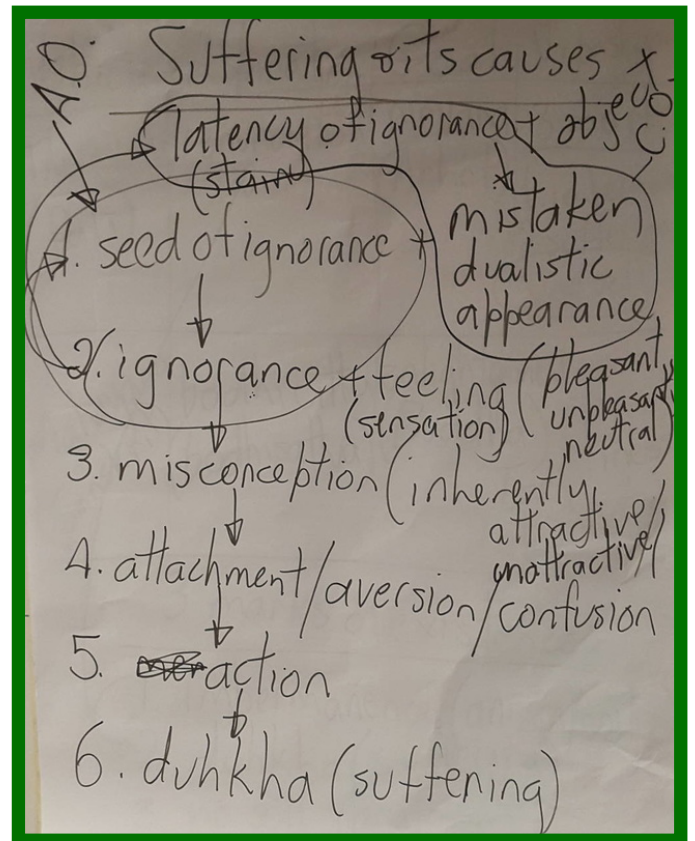 A.O. Suffering & its causes
latency of ignorance + obj
(stain)
mistaken
dualistic
appearance
1. seed of ignorance +
2. ignorance + feeling (pleasant,
(sensation) unpleasant,
neutral)
3. misconception (inherently
attractive/
unattractive/
4. attachment/aversion/confusion
5. action
6. duhkha (suffening)